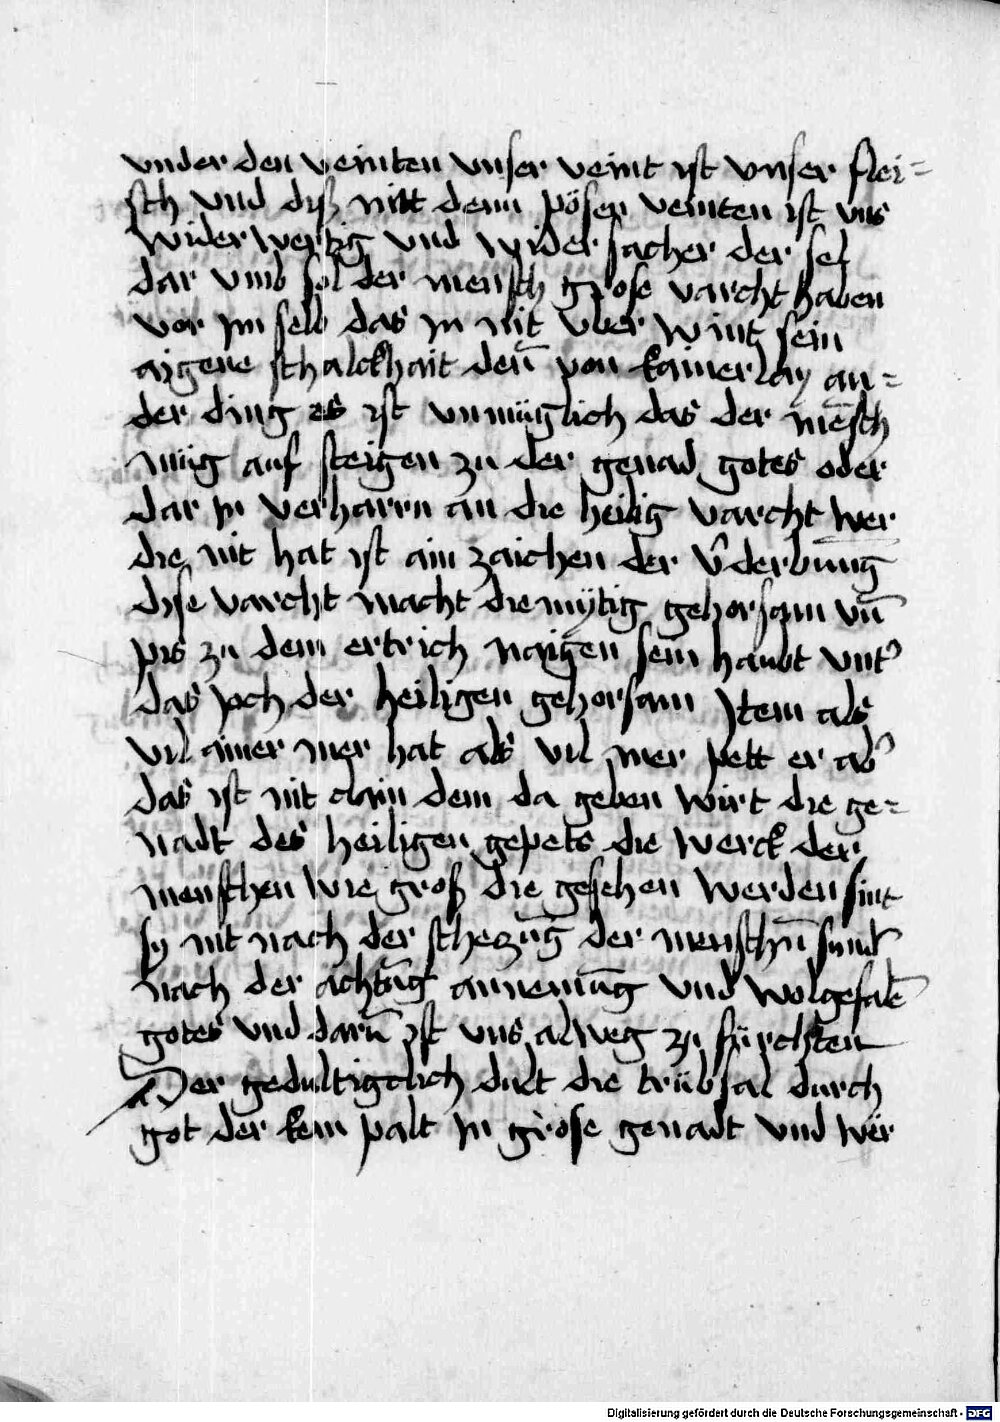 vnder den veinten vnser veint ist vnser flei=
sch vnd diß mitt denn pösen veinten ist vns
widerwertig vnd widersacher der sel
dar vmb sol der mensch grose varcht haben
vor im selb das in nit vber wint sein
aigene schalckhait den̄ von kainerlay an=
der ding es ist vnmüglich das der mēsch
müg auf steigen zu der genad gotes oder
dar in verharrn an die heilig varcht wer
die nit hat ist ain zaichen der v̾derbung
dise varcht macht diemytig gehorsam vn̄
pis zu dem ertrich naigen sein haubt vnt̾
das joch der heiligen gehorsam Jtem als
vil ainer mer hat als vil mer pett er ab̾
das ist nit clain dem da geben wirt die ge=
nadt des heiligen gepets die werck der
menschen wie groß die gesehen werden sint
sy nit nach der schezūg der menschn̄ sund̾
nach der achtūg annemūg vnd wolgefalē
gotes vnd darū ist vns alweg zu fürchten
Der gedultigclich dult die trübsal durch
got der kem palt in grose genadt vnd wer